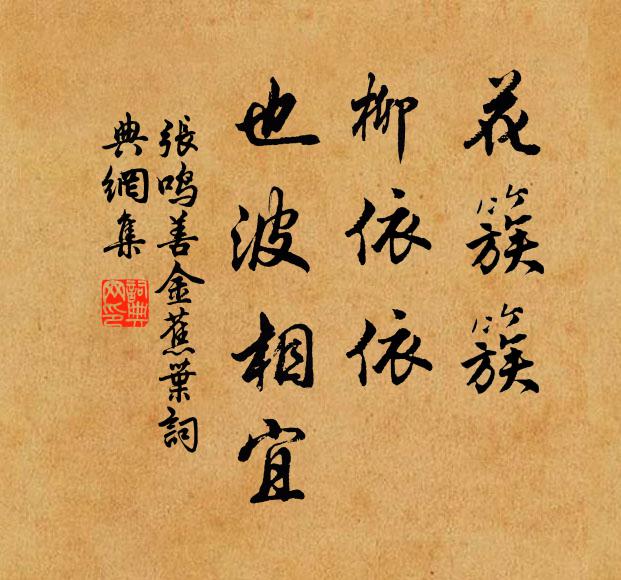 花簇簇
柳依依
也波相宜
張鳴善金蕉葉詞
典網集
詞典網印